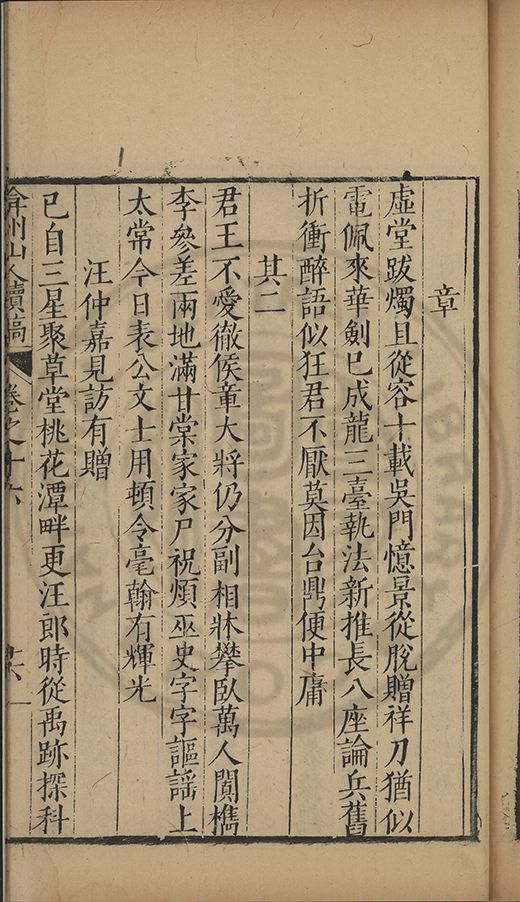 章
虛堂跋燭且從容十載吳門憶景從脫贈祥刀猶似
電佩來華劍已成龍三臺執法新推長八座論兵舊
折衝醉語似狂君不厭莫因台鼎便中庸
其二
君王不愛徹侯章大將仍分副相牀攀臥萬人闐檇
李參差兩地滿甘棠家家尸祝煩巫史字字謳謡上
太常今日表公文士用頓令毫翰有輝光
汪仲嘉見訪有贈
已自三星聚草堂桃花潭畔更汪郎時從禹跡探科
弇州山人續稿 卷之十六 廿六